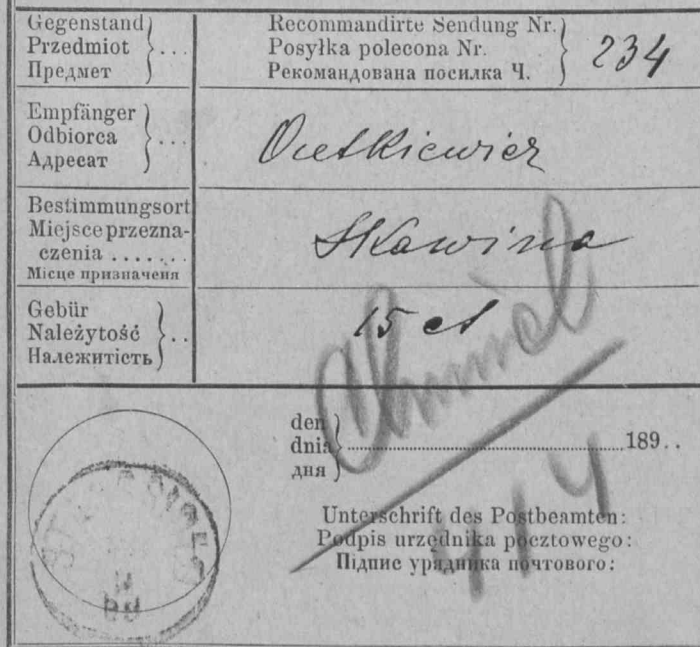 Gegenstand
Przedmiot
Предмет
Recommandirte Sendung Nr.
Posyłka polecona Nr.
Рекомандована посилка Ч.
234
Empfänger
Odbiorca
Адресат
Bestimmungsort
Miejsce przezna-
czenia ......
Місце призначеня
Skawina
Gebür
Należytość
Належитість
15 ct
den
dnia
дня
189..
Unterschrift des Postbeamten:
Podpis urzędnika pocztowego:
Підпис урядника почтового: